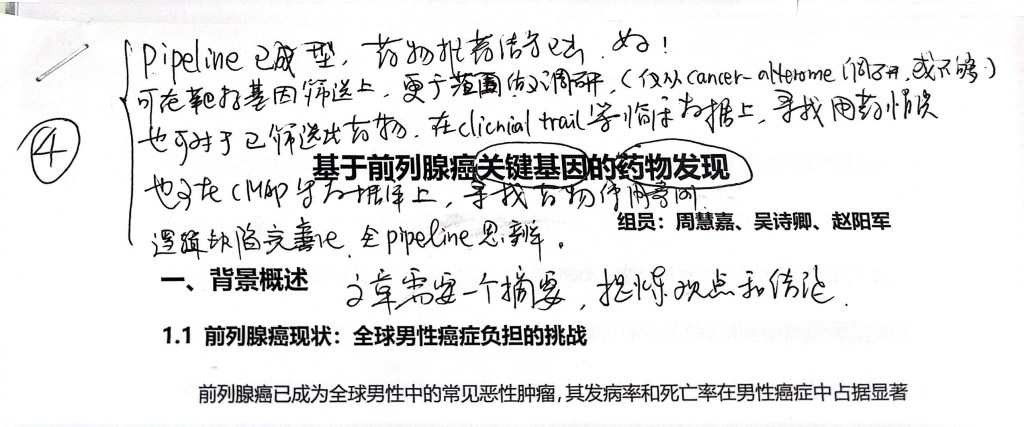 Pipeline 已成型，药物推荐结果已出，好！
可在靶标基因筛选上，更广范围做调研，（仅从cancer-alterome 调研，或不够）
④
也可对于已筛选出药物，在clicnial trail等临床数据上，寻找用药情况
基于前列腺癌关键基因的药物发现
也可在CMAP等数据库上，寻找药物作用基因.
组员：周慧嘉、吴诗卿、赵阳军
逻辑缺陷完善化 全pipeline思辨。
一、背景概述
文章需要一个摘要，提炼观点和结论.
1.1 前列腺癌现状：全球男性癌症负担的挑战
前列腺癌已成为全球男性中的常见恶性肿瘤，其发病率和死亡率在男性癌症中占据显著